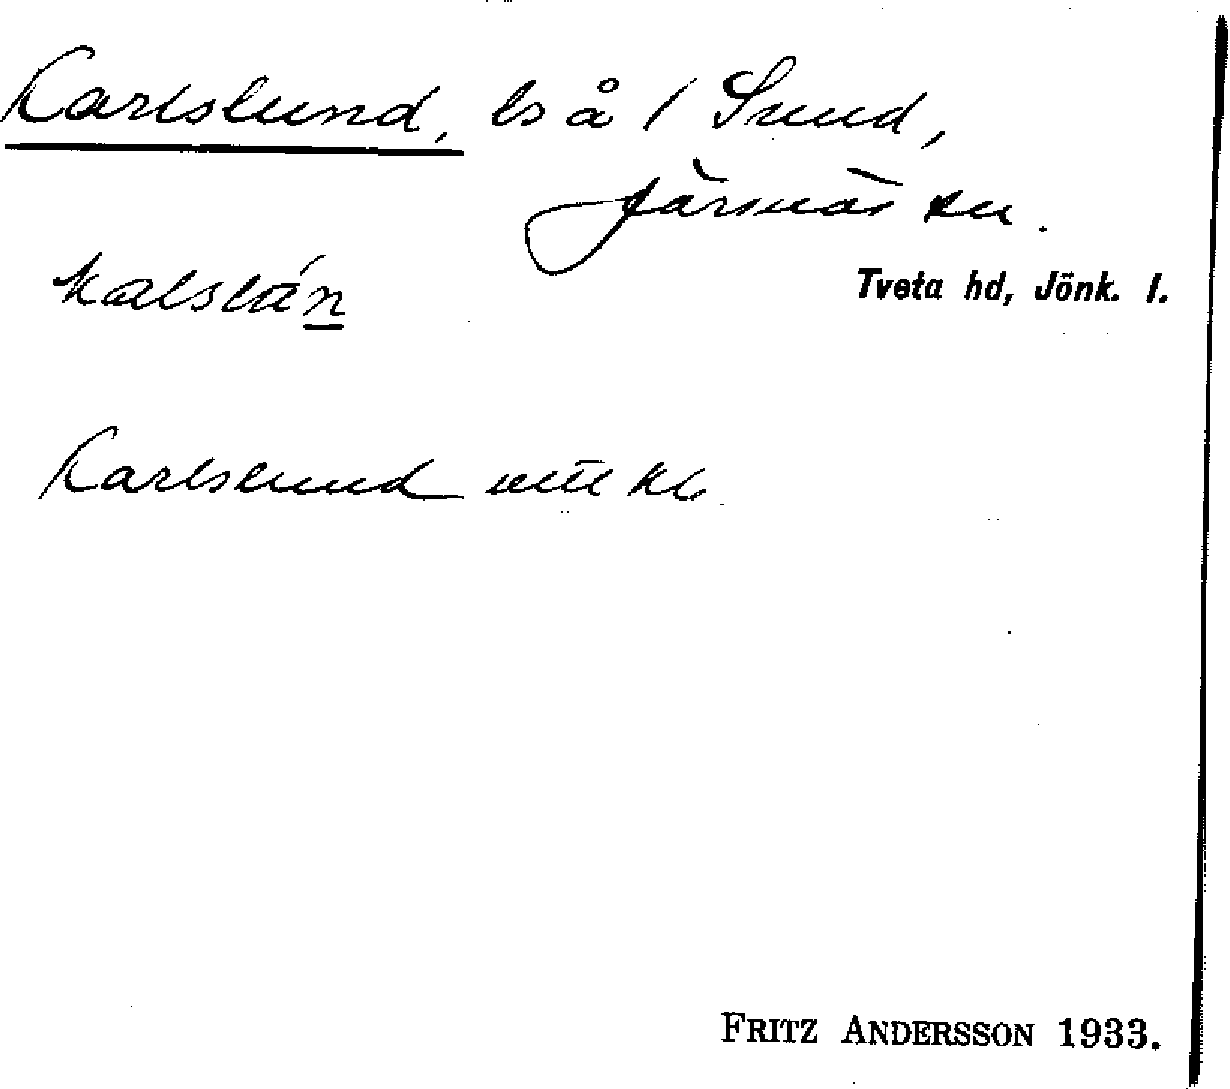 Karlslund, ls å 1 Sund,
Järsnäs sn.
Tveta hd, Jönk. l.
Karlslund
FRITZ ANDERSSON 1933.